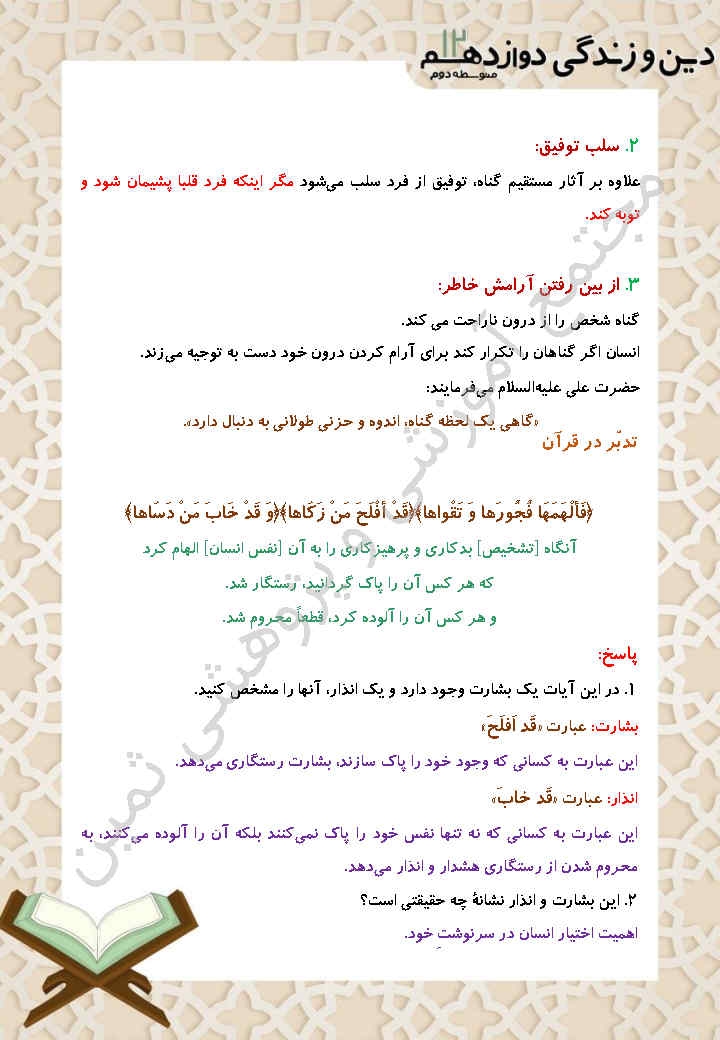 دین و زندگی دوازدهم ۱۲
متوسطه دوم
۲. سلب توفیق:
علاوه بر آثار مستقیم گناه، توفیق از فرد سلب می‌شود مگر اینکه فرد قلبا پشیمان شود و
توبه کند.
۳. از بین رفتن آرامش خاطر:
گناه شخص را از درون ناراحت می کند.
انسان اگر گناهان را تکرار کند برای آرام کردن درون خود دست به توجیه می‌زند.
حضرت علی علیه‌السلام می‌فرمایند:
«گاهی یک لحظه گناه، اندوه و حزنی طولانی به دنبال دارد».
تدبّر در قرآن
﴿فَأَلْهَمَهَا فُجُورَها وَ تَقْواها﴾﴿قَدْ أَفْلَحَ مَنْ زَکَاها﴾﴿وَ قَدْ خَابَ مَنْ دَسّاها﴾
آنگاه [تشخیص] بدکاری و پرهیزکاری را به آن [نفس انسان] الهام کرد
که هر کس آن را پاک گردانید، رستگار شد.
و هر کس آن را آلوده کرد، قطعاً محروم شد.
پاسخ:
۱. در این آیات یک بشارت وجود دارد و یک انذار، آنها را مشخص کنید.
بشارت: عبارت «قَد اَفلَحَ»
این عبارت به کسانی که وجود خود را پاک سازند، بشارت رستگاری می‌دهد.
انذار: عبارت «قَد خابَ»
این عبارت به کسانی که نه تنها نفس خود را پاک نمی‌کنند بلکه آن را آلوده می‌کنند، به
محروم شدن از رستگاری هشدار و انذار می‌دهد.
۲. این بشارت و انذار نشانهٔ چه حقیقتی است؟
اهمیت اختیار انسان در سرنوشت خود.
مجتمع آموزشی و پژوهشی ثمین